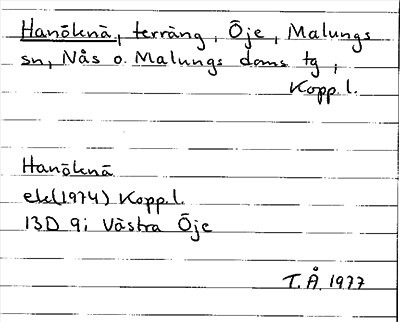 Hanöknä, terräng, Öje, Malungs
sn, Nås o. Malungs doms tg,
Kopp. l.
Hanöknä
ek (1974) Kopp. l.
13D 9i Västra Öje
T. Å. 1977